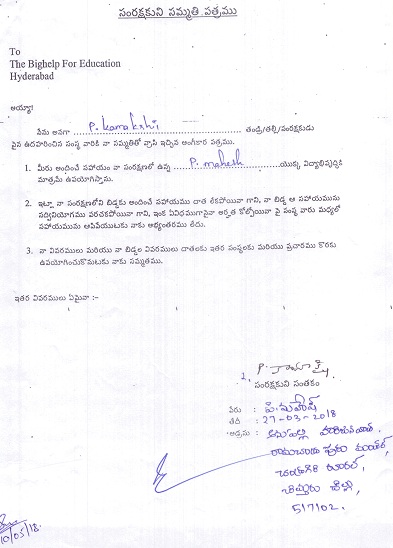 సంరక్షకుని సమ్మతి పత్రము
To
The Bighelp For Education
Hyderabad
అయ్యా!
నేను అనగా P. Kamakshi తండ్రి/తల్లి/సంరక్షకుడు
పైన ఉదహరించిన సంస్థ వారికి నా సమ్మతితో వ్రాసి ఇచ్చిన అంగీకార పత్రము.
1. మీరు అందించే సహాయం నా సంరక్షణలో ఉన్న P. mahesh యొక్క విద్యాభివృద్ధికి
మాత్రమే ఉపయోగిస్తాము.
2. ఇట్లా నా సంరక్షణలోని బిడ్డకు అందించే సహాయము దాత లేకపోయినా గాని, నా బిడ్డ ఆ సహాయమును
సద్వినియోగము పరచకపోయినా గాని, ఇంక ఏవిధముగానైనా అర్హత కోల్పోయినా పై సంస్థ వారు మధ్యలో
సహాయమును ఆపివేయుటకు నాకు అభ్యంతరము లేదు.
3. నా వివరములు మరియు నా బిడ్డల వివరములు దాతలకు ఇతర సంస్థలకు మరియు ప్రచారము కొరకు
ఉపయోగించుకొనుటకు నాకు సమ్మతము.
ఇతర వివరములు ఏమైనా :-
1.
సంరక్షకుని సంతకం
పేరు : పి. మహేష్
తేది : 27-03-2018
అడ్రసు :
చంద్రగిరి రూరల్,
చిత్తూరు జిల్లా,
517102.
10/05/18.